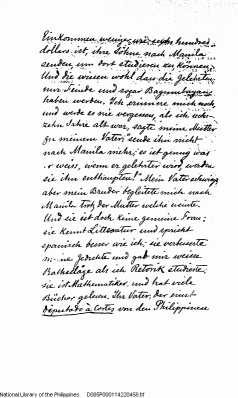 Einkommen wenige und sechs hundred
dollars ist, ihre Söhne nach Manila
senden, um dort studieren zu können.
Und die wissen wohl dass die Gelehrten
nur Feinde und sogar Bagumbayan
haben werden. Ich erinnere mich noch
und werde es nie vergessen, als ich acht-
zehn Jahre alt war, sagte meine Mutter
zu meinem Vater, sende ihn nicht
nach Manila mehr; es ist genug was
er weiss, wenn er gelehrter wird, werden
sie ihn enthaupten! Mein Vater schwieg
aber mein Bruder begleitete mich nach
Manila trotz der Mutter welche weinte.
Und sie ist doch keine gemeine Frau;
sie kennt Litteratur und spricht
spanisch besser wie ich; sie verbesserte
meine Gedichte und gab mir weise
Rathschläge als ich Retorik studierte;
sie ist Mathematiker, und hat viele
Bücher gelesen. Ihr Vater, der einst
deputado à Cortes von den Philippinen
National Library of the Philippines